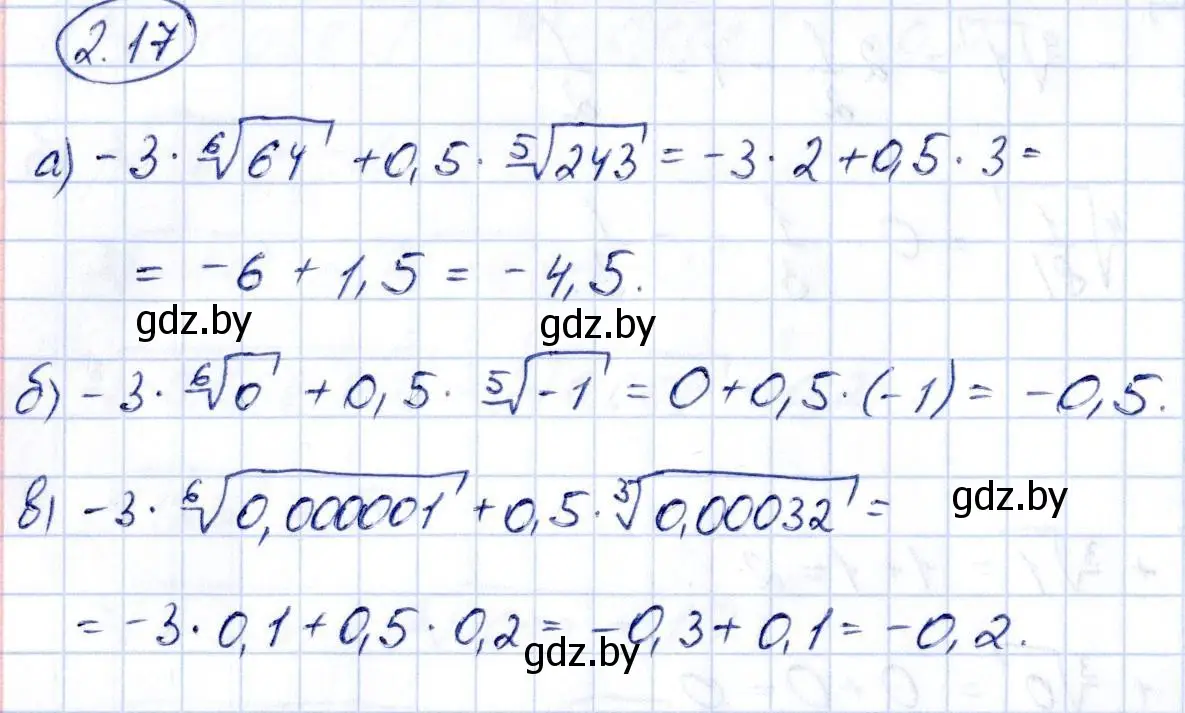 2.17
а) -3 · ⁶√64 + 0,5 · ⁵√243 = -3 · 2 + 0,5 · 3 =
= -6 + 1,5 = -4,5.
gdz.by gdz.by
б) -3 · ⁶√0 + 0,5 · ⁵√-1 = 0 + 0,5 · (-1) = -0,5.
в) -3 · ⁶√0,000001 + 0,5 · ³√0,00032 =
gdz.by
= -3 · 0,1 + 0,5 · 0,2 = -0,3 + 0,1 = -0,2.
gdz.by